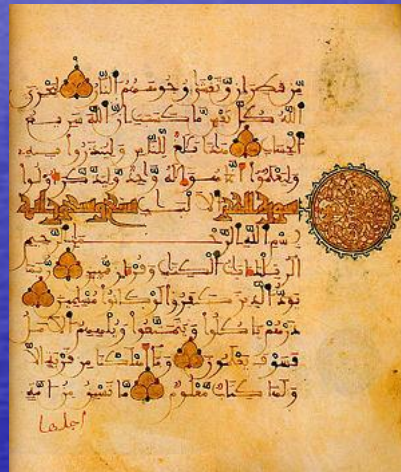 من قطران وتغشى وجوههم النار ليجزي
الله كل نفس ما كسبت ان الله سريع
الحساب هذا بلغ للناس ولينذروا به
وليعلموا انما هو اله واحد وليذكر اولوا
سورة الحجر الالبب تسع وتسعون اية
بسم الله الرحمن الرحيم
الر تلك ايت الكتب وقران مبين ربما
يود الذين كفروا لو كانوا مسلمين
ذرهم ياكلوا ويتمتعوا ويلههم الامل
فسوف يعلمون وما اهلكنا من قرية الا
ولها كتاب معلوم ما تسبق من امة
اجلها